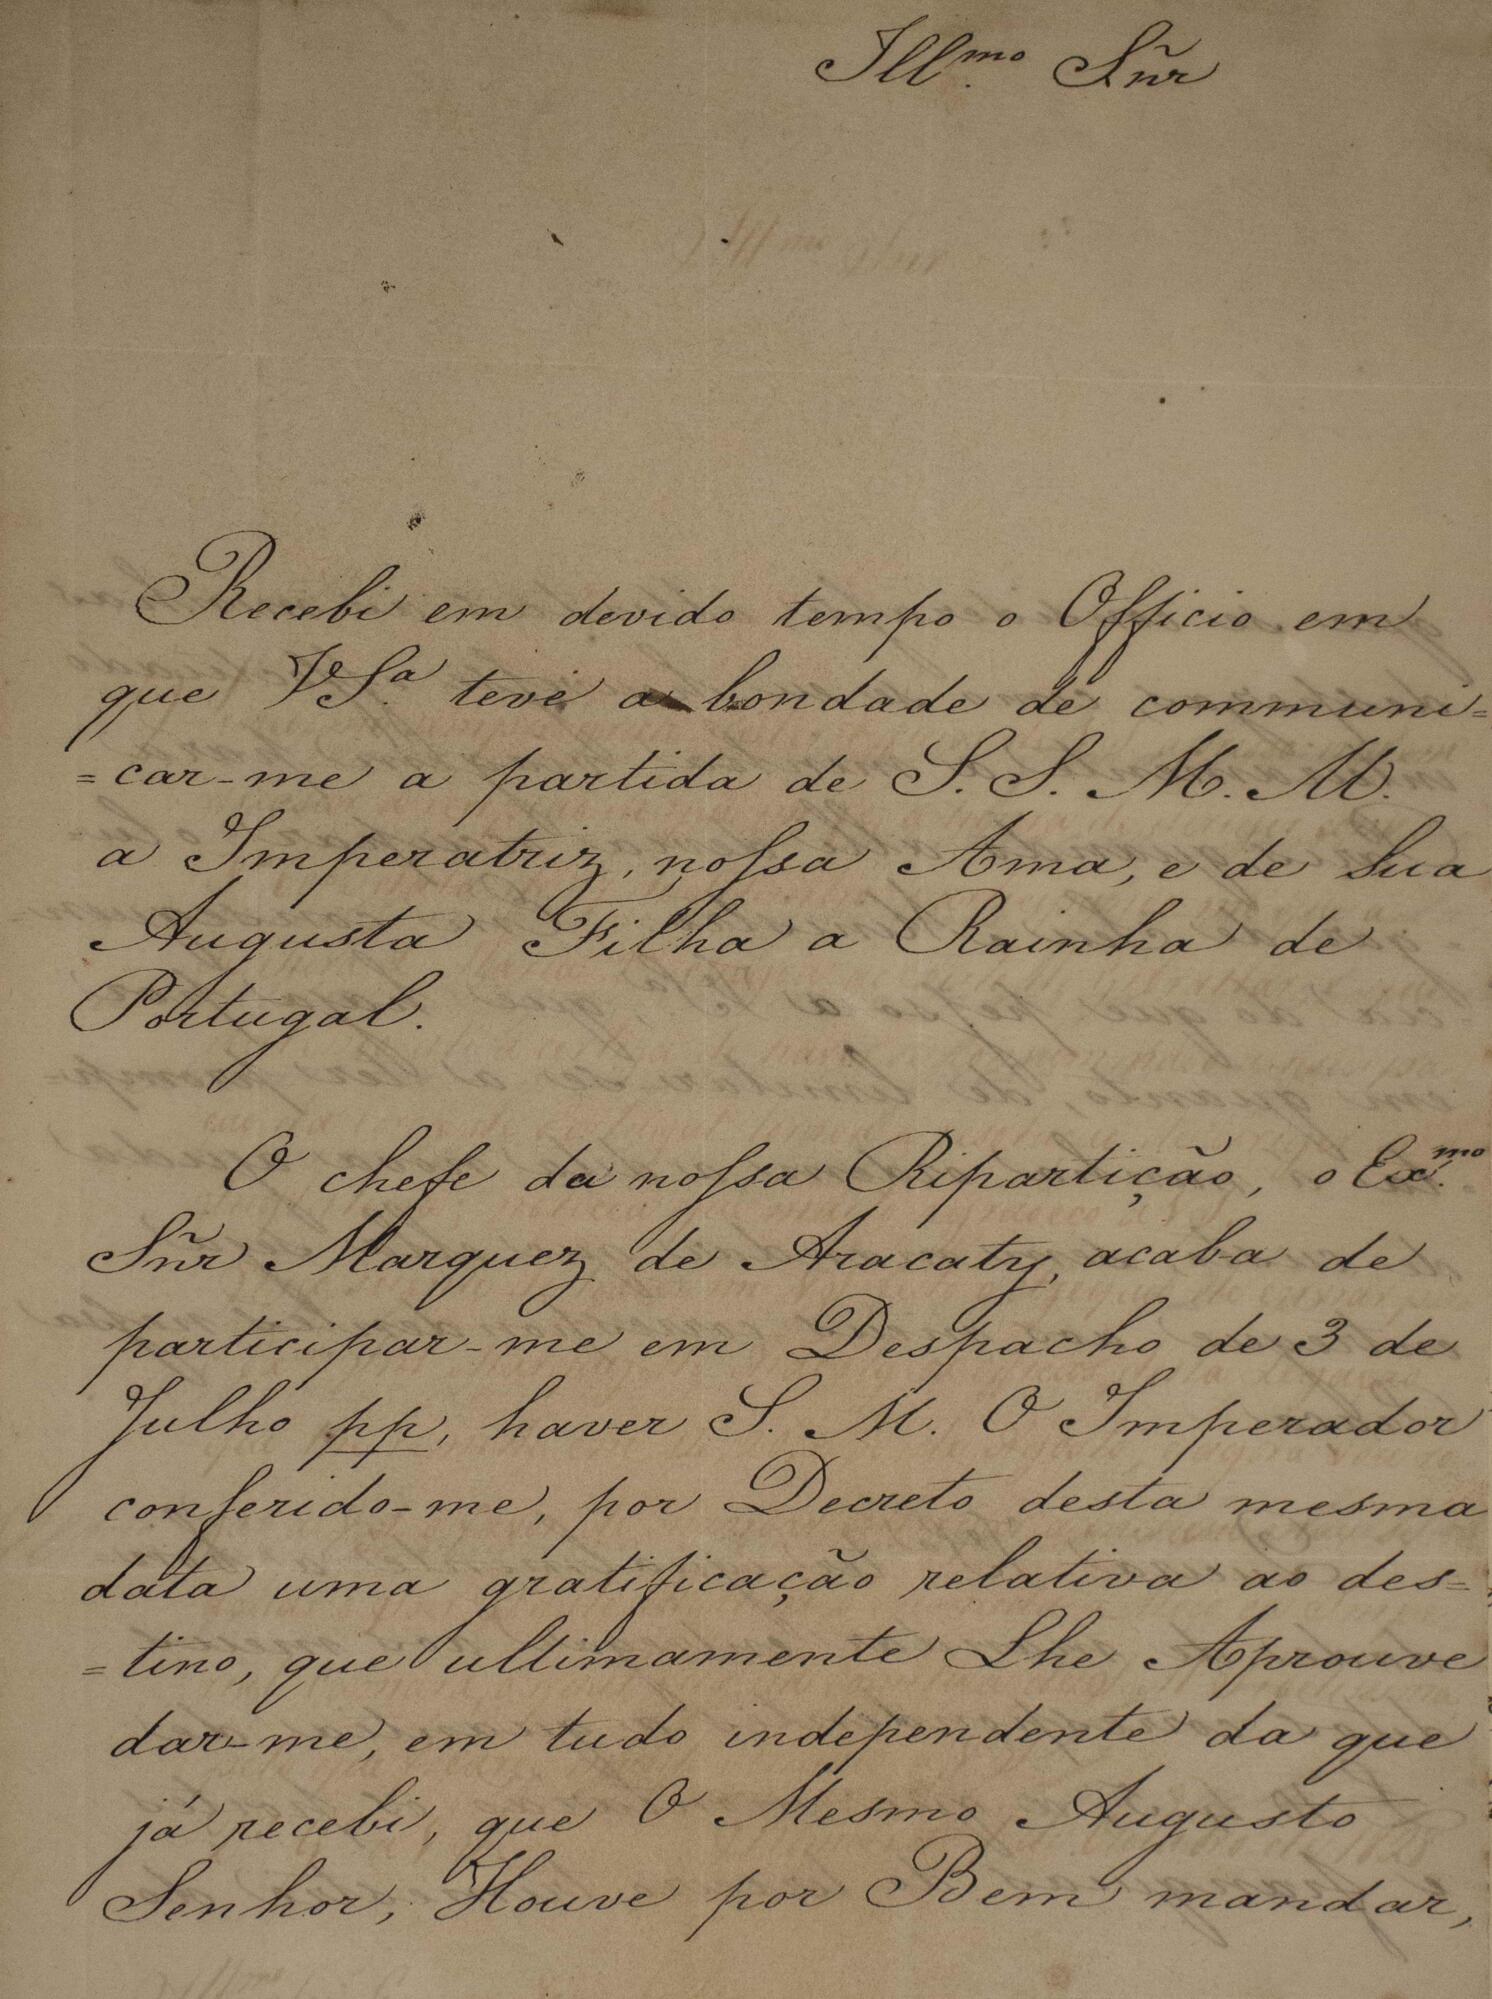 Ill.mo Sñr
Recebi em devido tempo o Officio em
que VS.a teve a bondade de communi=
=car-me a partida de S. S. M. M.
a Imperatriz, nossa Ama, e de Sua
Augusta Filha a Rainha de
Portugal.
O chefe da nossa Ripartição, o Ex.mo
Sñr Marquez de Aracaty, acaba de
participar-me em Despacho de 3 de
Julho pp, haver S. M. O Imperador
conferido-me, por Decreto desta mesma
data uma gratificação relativa ao des=
=tino, que ultimamente Lhe Aprouve
dar-me, em tudo independente da que
já recebi, que O Mesmo Augusto
Senhor, Houve por Bem mandar,